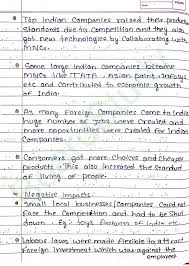 Top Indian Companies raised their product
Standards due to Competition and they also
got new technologies by Collaborating with
MNCs.
Some large Indian Companies become
MNCs like TATA, Asian paint, Infosys
etc and Contributed to economic growth
of India.
As many Foreign Companies Come to India
huge Number of jobs were Created and
more opportunities were Created for Indian
Companies.
Consumers got more Choices and Cheaper
products. This also increased the Standard
of living of people.
Negative impacts:
Small local businesses/Companies Could not
Face the Competition and had to be Shut
down. Eg: toys Industries of India etc.
Labour laws were made flexible to attract
Foreign Investment which was against the
employees